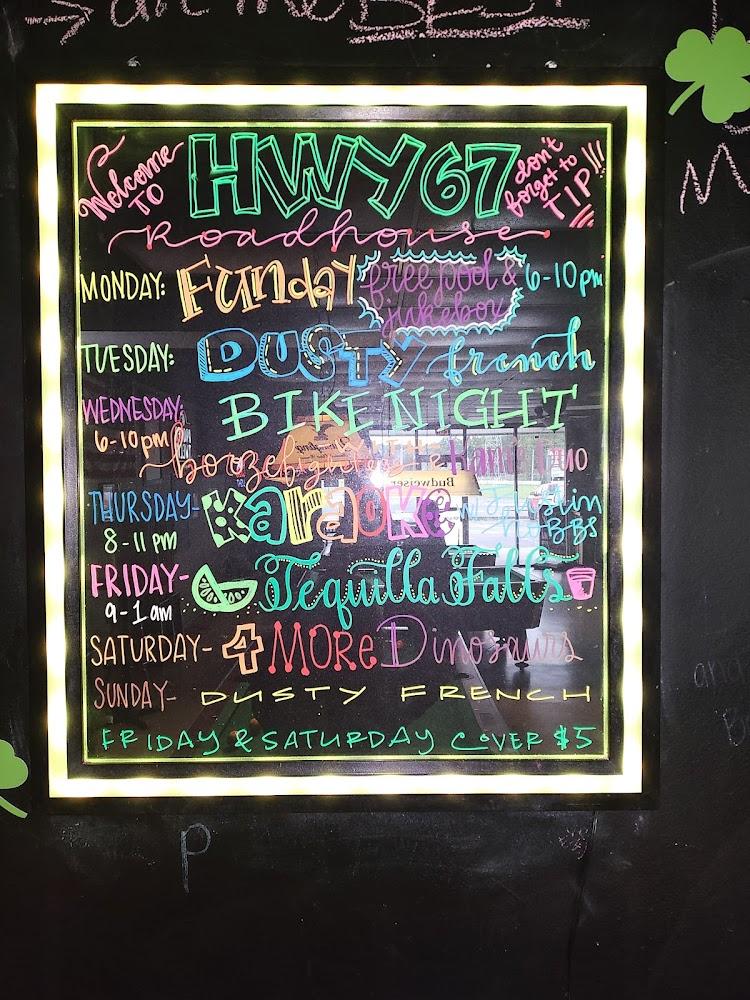 Welcome TO HWY 67 don't forget to TIP!!!
Roadhouse
MONDAY: FUNday free pool & jukebox 6-10pm
TUESDAY: DUSTY french
WEDNESDAY: BIKE NIGHT
6-10pm boozefighters
THURSDAY- Karaoke
8-11 pm
FRIDAY- Tequilla Falls
9-1am
SATURDAY- 4 MORe Dinosaurs
SUNDAY- DUSTY FRENCH
FRIDAY & SATURDAY COVER $5
Budweiser
P